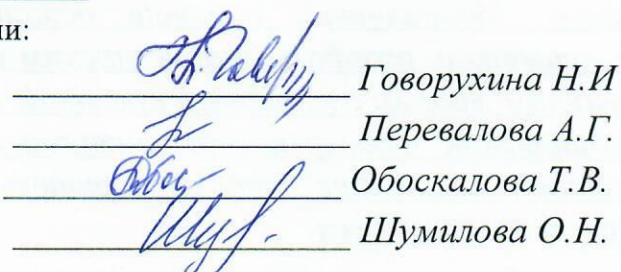 ии:
Говорухина Н.И
Перевалова А.Г.
Обоскалова Т.В.
Шумилова О.Н.